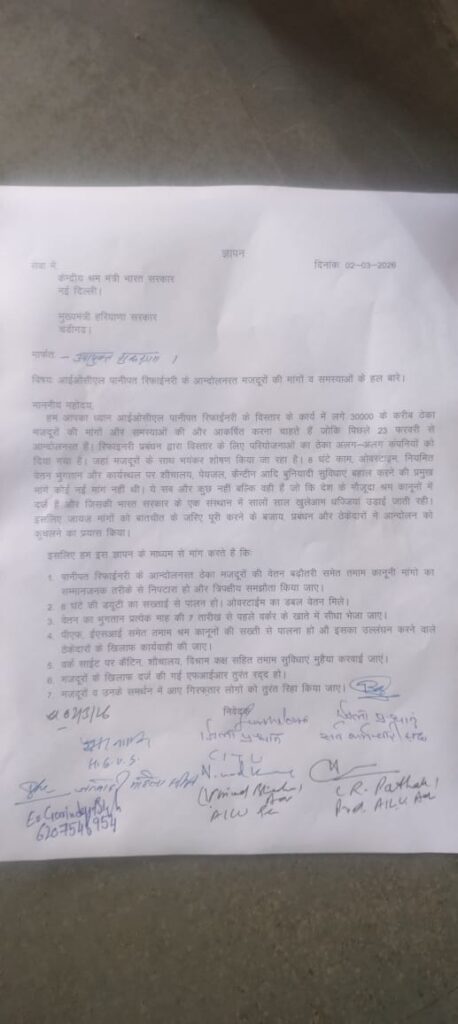 ज्ञापन
सेवा में, दिनांक 02-03-2026
केन्द्रीय श्रम मंत्री भारत सरकार
नई दिल्ली।
मुख्यमंत्री हरियाणा सरकार
चंडीगढ़।
मार्फत :-
विषय: आईओसीएल पानीपत रिफाईनरी के आन्दोलनरत मजदूरों की मांगों व समस्याओं के हल बारे।
माननीय महोदय,
हम आपका ध्यान आईओसीएल पानीपत रिफाईनरी के विस्तार के कार्य में लगे 30000 के करीब ठेका
मजदूरों की मांगों और समस्याओं की और आकर्षित करना चाहते हैं जोकि पिछले 23 फरवरी से
आन्दोलनरत हैं। रिफाइनरी प्रबंधन द्वारा विस्तार के लिए परियोजनाओं का ठेका अलग-अलग कंपनियों को
दिया गया है। जहां मजदूरों के साथ भयंकर शोषण किया जा रहा है। 8 घंटे काम, ओवरटाइम, नियमित
वेतन भुगतान और कार्यस्थल पर शौचालय, पेयजल, कैन्टीन आदि बुनियादी सुविधाएं बहाल करने की प्रमुख
मांगे कोई नई मांग नहीं थी। ये सब और कुछ नहीं बल्कि वही है जो कि देश के मौजूदा श्रम कानूनों में
दर्ज है और जिसकी भारत सरकार के एक संस्थान में सालों साल खुलेआम धज्जियां उड़ाई जाती रही।
इसलिए जायज मांगों को बातचीत के जरिए पूरी करने के बजाय, प्रबंधन और ठेकेदारों ने आन्दोलन को
कुचलने का प्रयास किया।
इसलिए हम इस ज्ञापन के माध्यम से मांग करते है कि:
1. पानीपत रिफाईनरी के आन्दोलनरत ठेका मजदूरों की वेतन बढ़ोतरी समेत तमाम कानूनी मांगो का
सम्मानजनक तरीके से निपटारा हो और त्रिपक्षीय समझौता किया जाए।
2. 8 घंटे की ड्यूटी का सख्ताई से पालन हो। ओवरटाईम का डबल वेतन मिले।
3. वेतन का भुगतान प्रत्येक माह की 7 तारीख से पहले वर्कर के खाते में सीधा भेजा जाए।
4. पीएफ, ईएसआई समेत तमाम श्रम कानूनों की सख्ती से पालना हो औ इसका उल्लंघन करने वाले
ठेकेदारों के खिलाफ कार्यवाही की जाए।
5. वर्क साईट पर कैंटिन, शौचालय, विश्राम कक्ष सहित तमाम सुविधाएं मुहैया करवाई जाएं।
6. मजदूरों के खिलाफ दर्ज की गई एफआईआर तुरंत रद्द हो।
7. मजदूरों व उनके समर्थन में आए गिरफ्तार लोगों को तुरंत रिहा किया जाए।
निवेदक
जिला प्रधान जिला प्रधान
CITU
(R. Pathak)
6207548954